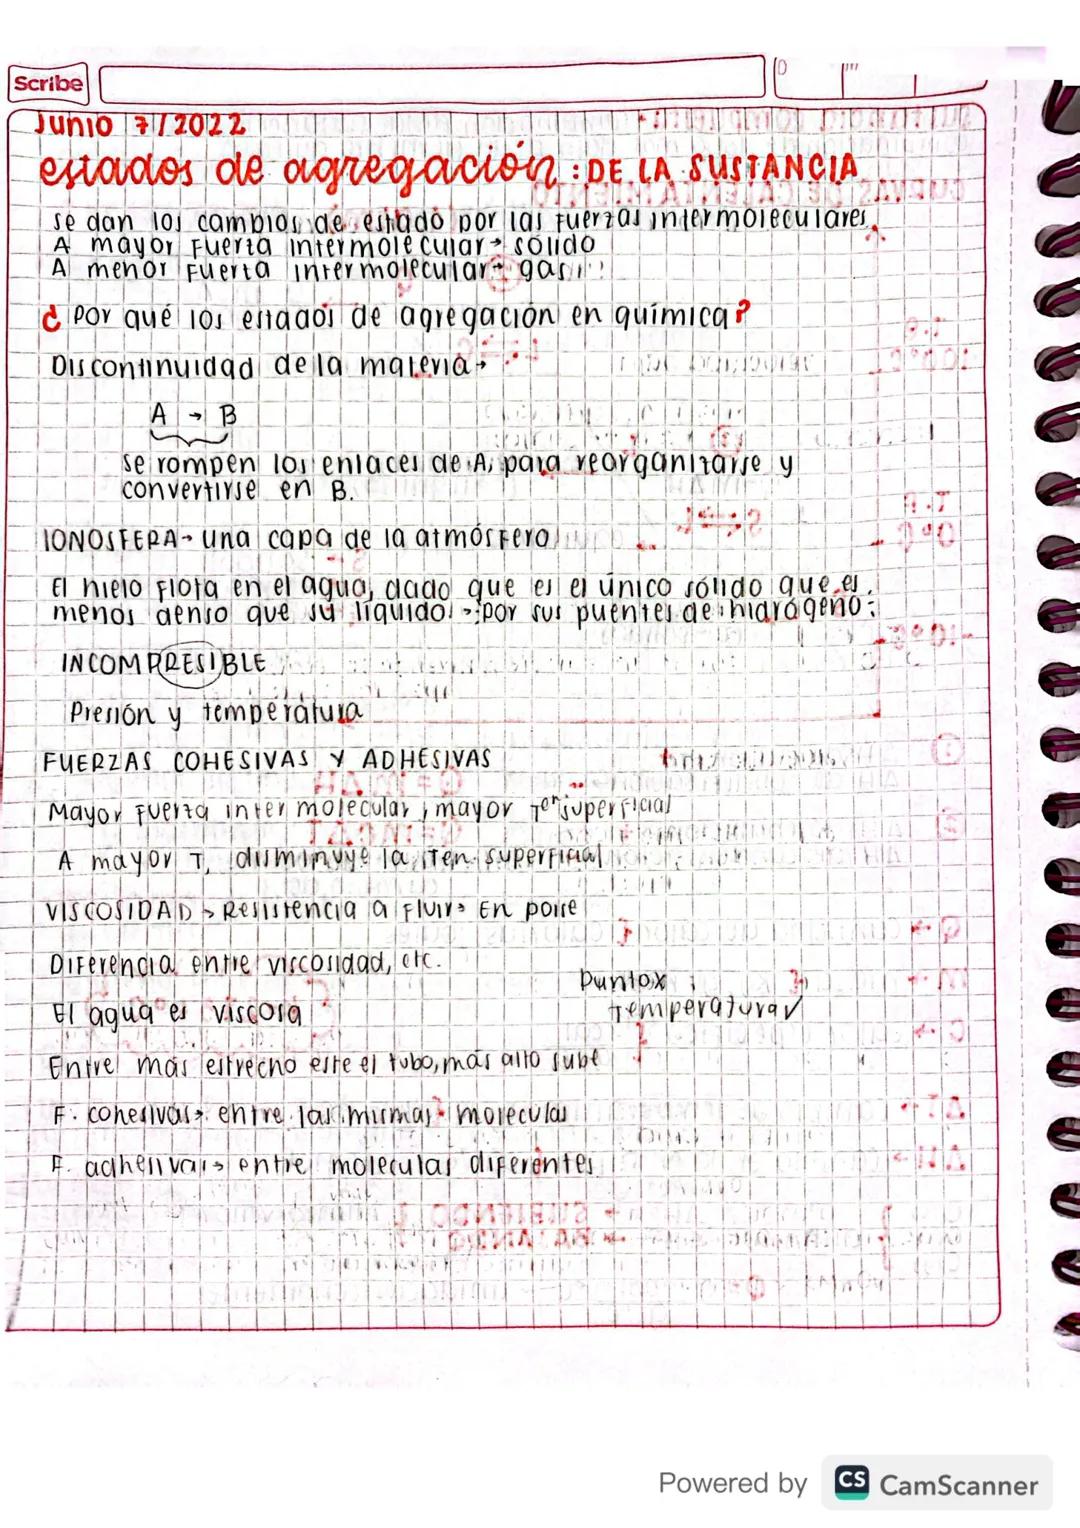 Scribe
Junio 7/2022
estados de agregación: DE LA SUSTANCIA
se dan los cambios de estado por las fuerzas intermoleculares
A mayor fuerza intermolecular → sólido
A menor fuerza intermolecular → gas
¿Por qué los estados de agregación en química?
Discontinuidad de la materia →
A → B
se rompen los enlaces de A, para reorganizarse y
convertirse en B.
IONOSFERA → una capa de la atmósfera
El hielo flota en el agua, dado que es el único sólido que es
menos denso que su líquido. → por sus puentes de hidrógeno.
INCOMPRESIBLE
Presión y temperatura
FUERZAS COHESIVAS Y ADHESIVAS
Mayor fuerza intermolecular, mayor Ten superficial
A mayor T, disminuye la Ten. superficial
VISCOSIDAD → Resistencia a fluir → En poise
Diferencia entre viscosidad, etc.
Puntox
El agua es viscosa
Temperatura✓
Entre más estrecho este el tubo, más alto sube
F. cohesivas → entre las mismas moleculas
F. adhesivas → entre moleculas diferentes
Powered by CS CamScanner